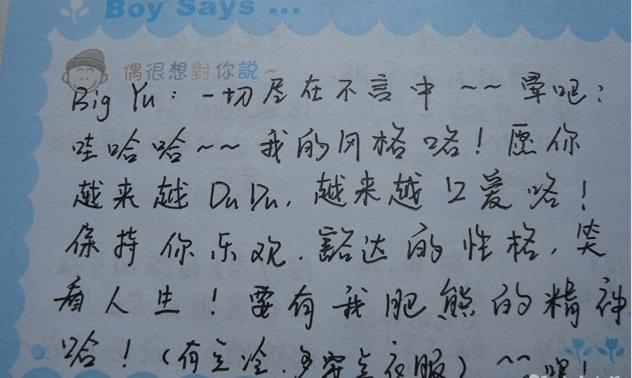 Boy Says ...
偶很想對你説~
Big Yu：一切尽在不言中~~晕吧：
哇哈哈~~我的风格咯！愿你
越来越DuDu，越来越口爱咯！
保持你乐观、豁达的性格，笑
看人生！要有我肥熊的精神
哈！（有点冷，多穿点衣服）~~嘿！